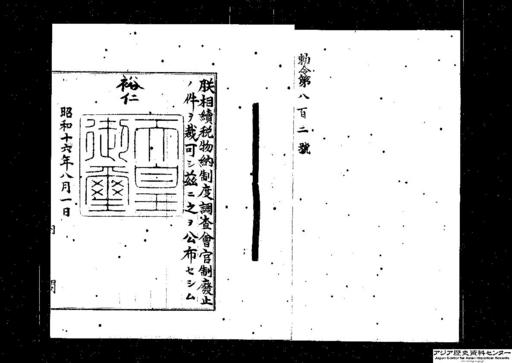 勅令第八百二號
朕相續税物納制度調査會官制廢止
ノ件ヲ裁可シ茲ニ之ヲ公布セシム
裕仁
天皇御璽
昭和十六年八月一日
内閣
アジア歴史資料センター
Japan Center for Asian Historical Records